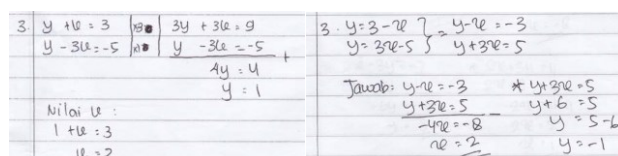 3. y + x = 3 | x3 | 3y + 3x = 9
y - 3x = -5 | x1 | y - 3x = -5 +
4y = 4
y = 1
Nilai x :
1 + x = 3
x = 2
3. y = 3 - x } = y - x = -3
y = 3x - 5 } y + 3x = 5
Jawab: y - x = -3
y + 3x = 5 -
-4x = -8
x = 2
* y + 3x = 5
y + 6 = 5
y = 5 - 6
y = -1